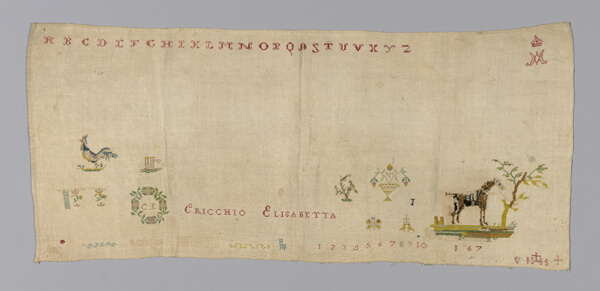 A B C D E F G H I K L M N O P Q R S T U V X Y Z
M
C E
CRICCHIO ELISABETTA
1 2 3 4 5 6 7 8 9 10 1 6 7